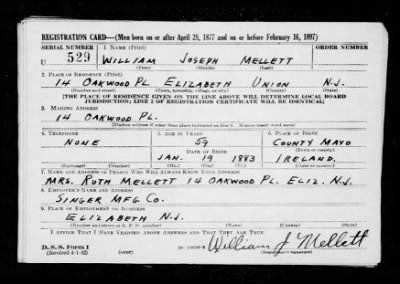 REGISTRATION CARD—(Men born on or after April 28, 1877 and on or before February 16, 1897)
SERIAL NUMBER 1. NAME (Print)
U 529 WILLIAM JOSEPH MELLETT
(First) (Middle) (Last)
2. PLACE OF RESIDENCE (Print)
14 OAKWOOD PL. ELIZABETH UNION N.J.
(Number and street) (Town, township, village, or city) (County) (State)
[THE PLACE OF RESIDENCE GIVEN ON THE LINE ABOVE WILL DETERMINE LOCAL BOARD
JURISDICTION; LINE 2 OF REGISTRATION CERTIFICATE WILL BE IDENTICAL]
3. MAILING ADDRESS
14 OAKWOOD PL.
[Mailing address if other than place indicated on line 2. If same insert word same]
4. TELEPHONE 5. AGE IN YEARS 6. PLACE OF BIRTH
NONE 59 COUNTY MAYO
DATE OF BIRTH (Town or county)
JAN. 19 1883 IRELAND.
(Exchange) (Number) (Mo.) (Day) (Yr.) (State or country)
7. NAME AND ADDRESS OF PERSON WHO WILL ALWAYS KNOW YOUR ADDRESS
MRS. RUTH MELLETT 14 OAKWOOD PL. ELIZ. N.J.
8. EMPLOYER'S NAME AND ADDRESS
SINGER MFG CO.
9. PLACE OF EMPLOYMENT OR BUSINESS
ELIZABETH N.J.
(Number and street or R. F. D. number) (Town) (County) (State)
I AFFIRM THAT I HAVE VERIFIED ABOVE ANSWERS AND THAT THEY ARE TRUE.
D. S. S. Form 1
(Revised 4-1-42) (over) William J Mellett
(Registrant's signature)